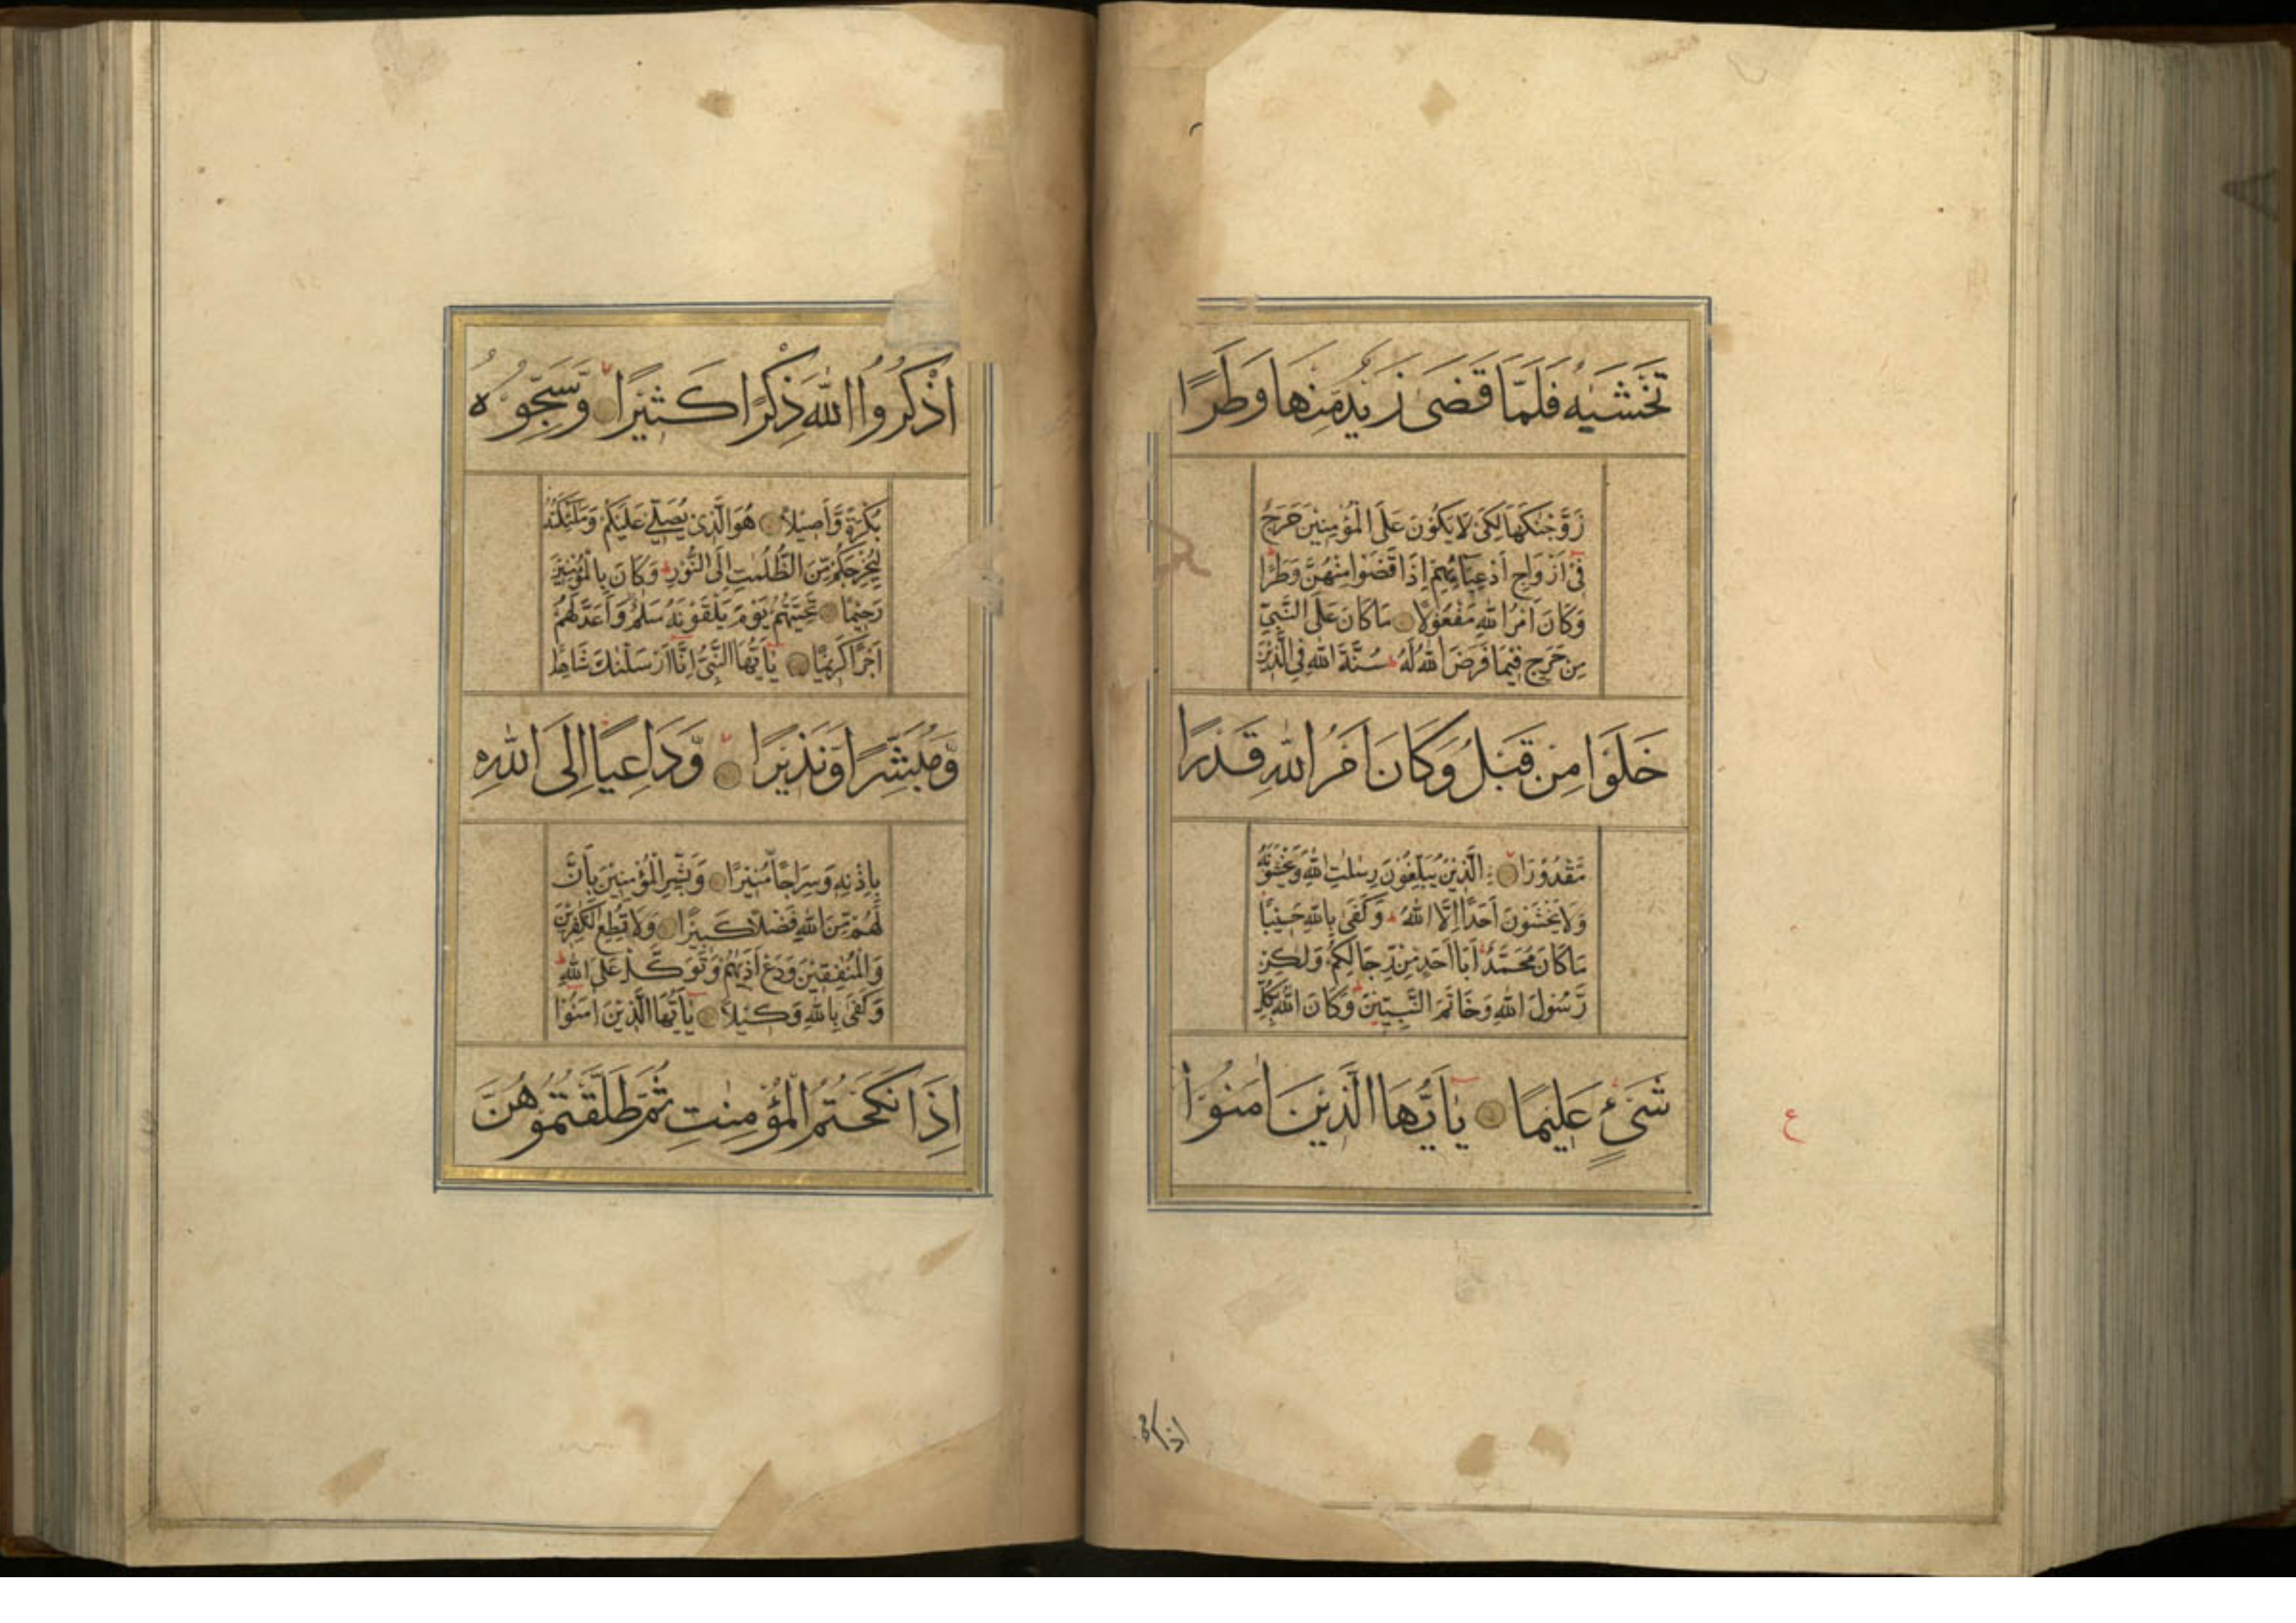 تَخْشٰيهُ فَلَمَّا قَضٰى زَيْدٌ مِنْهَا وَطَرًا
زَوَّجْنٰكَهَا لِكَىْ لَا يَكُوْنَ عَلَى الْمُؤْمِنِيْنَ حَرَجٌ
فِىْ اَزْوَاجِ اَدْعِيَآئِهِمْ اِذَا قَضَوْا مِنْهُنَّ وَطَرًا
وَكَانَ اَمْرُ اللّٰهِ مَفْعُوْلًا مَا كَانَ عَلَى النَّبِىِّ
مِنْ حَرَجٍ فِيْمَا فَرَضَ اللّٰهُ لَهُ ط سُنَّةَ اللّٰهِ فِى الَّذِيْنَ
خَلَوْا مِنْ قَبْلُ وَكَانَ اَمْرُ اللّٰهِ قَدَرًا
مَّقْدُوْرًا الَّذِيْنَ يُبَلِّغُوْنَ رِسٰلٰتِ اللّٰهِ وَيَخْشَوْنَهُ
وَلَا يَخْشَوْنَ اَحَدًا اِلَّا اللّٰهَ ط وَكَفٰى بِاللّٰهِ حَسِيْبًا
مَا كَانَ مُحَمَّدٌ اَبَا اَحَدٍ مِّنْ رِّجَالِكُمْ وَلٰكِنْ
رَّسُوْلَ اللّٰهِ وَخَاتَمَ النَّبِيّٖنَ ط وَكَانَ اللّٰهُ بِكُلِّ
شَىْءٍ عَلِيْمًا يٰاَيُّهَا الَّذِيْنَ اٰمَنُوْا
ع
اذكروا
اذْكُرُوا اللّٰهَ ذِكْرًا كَثِيْرًا وَّسَبِّحُوْهُ
بُكْرَةً وَّاَصِيْلًا هُوَ الَّذِىْ يُصَلِّىْ عَلَيْكُمْ وَمَلٰئِكَتُهُ
لِيُخْرِجَكُمْ مِّنَ الظُّلُمٰتِ اِلَى النُّوْرِ ط وَكَانَ بِالْمُؤْمِنِيْنَ
رَحِيْمًا تَحِيَّتُهُمْ يَوْمَ يَلْقَوْنَهُ سَلٰمٌ وَاَعَدَّ لَهُمْ
اَجْرًا كَرِيْمًا يٰاَيُّهَا النَّبِىُّ اِنَّا اَرْسَلْنٰكَ شَاهِدًا
وَّمُبَشِّرًا وَّنَذِيْرًا وَّدَاعِيًا اِلَى اللّٰهِ
بِاِذْنِهٖ وَسِرَاجًا مُّنِيْرًا وَبَشِّرِ الْمُؤْمِنِيْنَ بِاَنَّ
لَهُمْ مِّنَ اللّٰهِ فَضْلًا كَبِيْرًا وَلَا تُطِعِ الْكٰفِرِيْنَ
وَالْمُنٰفِقِيْنَ وَدَعْ اَذٰيهُمْ وَتَوَكَّلْ عَلَى اللّٰهِ ط
وَكَفٰى بِاللّٰهِ وَكِيْلًا يٰاَيُّهَا الَّذِيْنَ اٰمَنُوْا
اِذَا نَكَحْتُمُ الْمُؤْمِنٰتِ ثُمَّ طَلَّقْتُمُوْهُنَّ